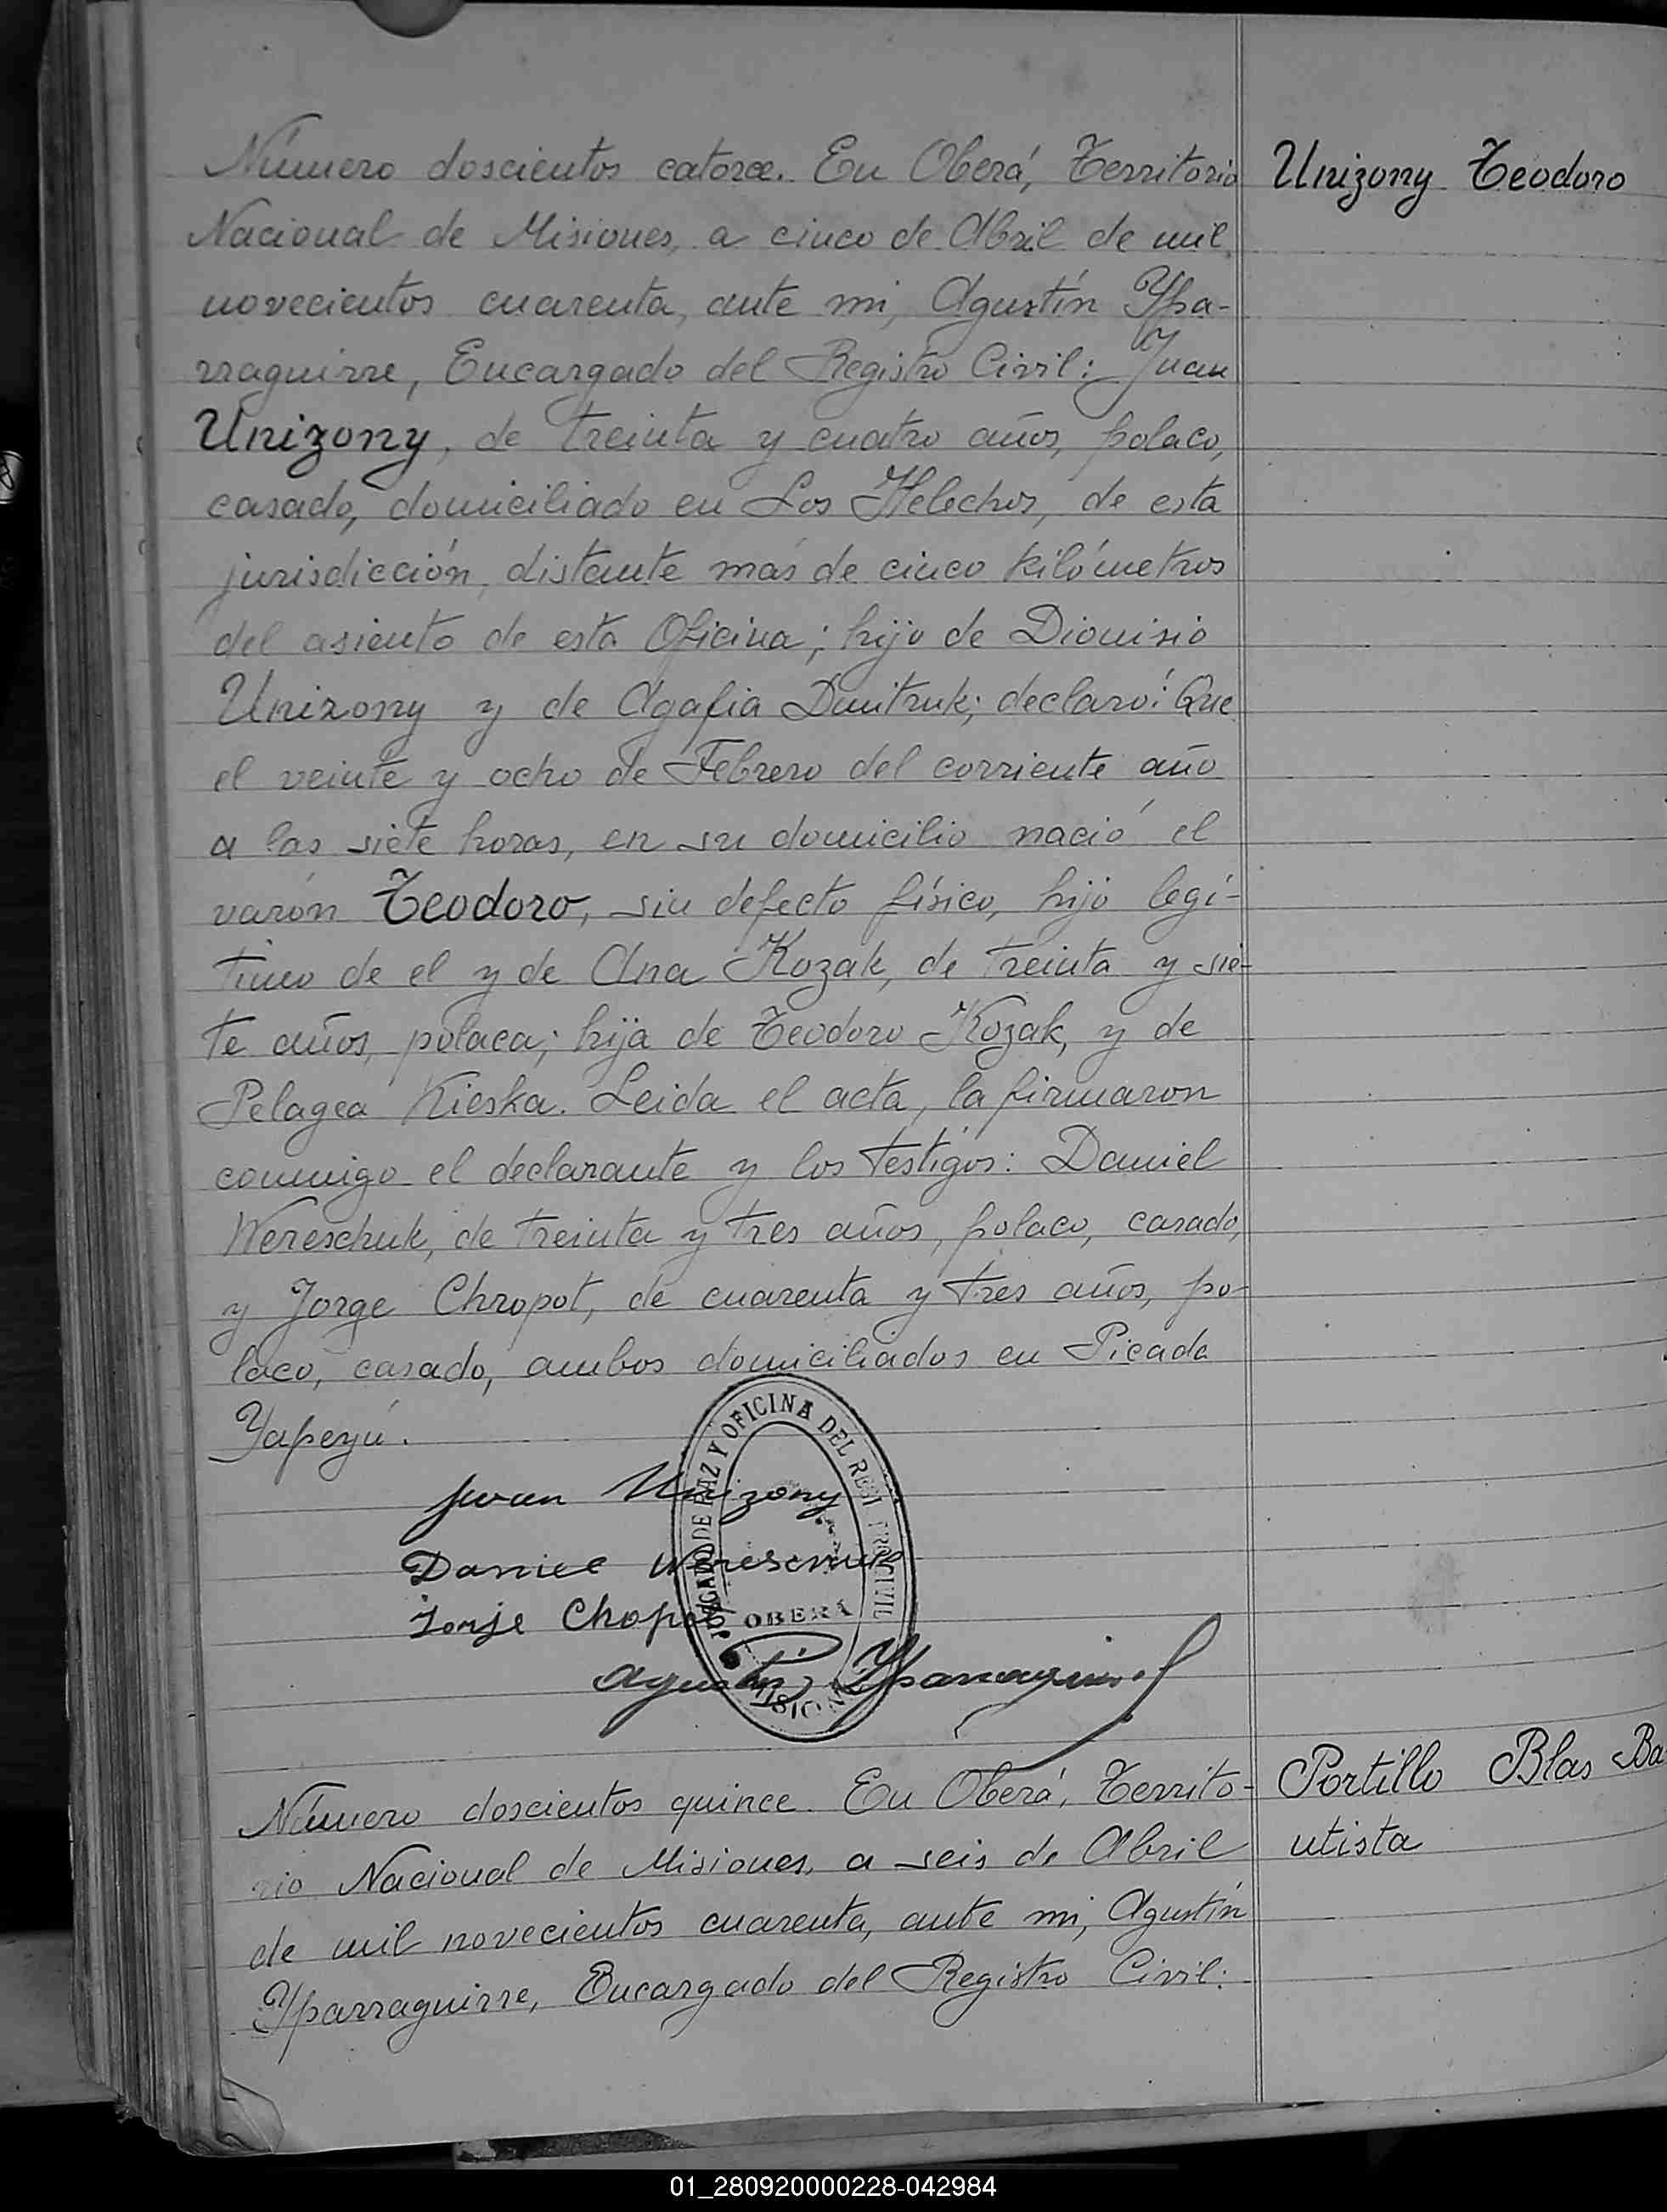 Número doscientos catorce. En Oberá, Territorio
Nacional de Misiones, a cinco de Abril de mil
novecientos cuarenta, ante mi, Agustín Ypa-
rraguirre, Encargado del Registro Civil: Juan
Unizony, de treinta y cuatro años, polaco,
casado, domiciliado en Los Helechos, de esta
jurisdicción, distante más de cinco kilómetros
del asiento de esta Oficina; hijo de Dionisio
Unizony y de Agafia Dmitruk; declaró: Que
el veinte y ocho de Febrero del corriente año
a las siete horas, en su domicilio nació el
varón Teodoro, sin defecto físico, hijo legí-
timo de el y de Ana Kozak, de treinta y sie-
te años, polaca; hija de Teodoro Kozak, y de
Pelagea Kieska. Leida el acta, la firmaron
conmigo el declarante y los testigos: Daniel
Wereschuk, de treinta y tres años, polaco, casado,
y Jorge Chropot, de cuarenta y tres años, po-
laco, casado, ambos domiciliados en Picada
Yapeyú.
Unizony Teodoro
Juan Unizony
Daniel Wereschuk
Jorje Chopot
Agustín Yparraguirre
JUZGADO DE PAZ Y OFICINA DEL REGISTRO CIVIL
OBERÁ
MISIONES
Número doscientos quince. En Oberá, Territo-
rio Nacional de Misiones, a seis de Abril
de mil novecientos cuarenta, ante mi, Agustín
Yparraguirre, Encargado del Registro Civil:
Portillo Blas Ba
utista
01_280920000228-042984